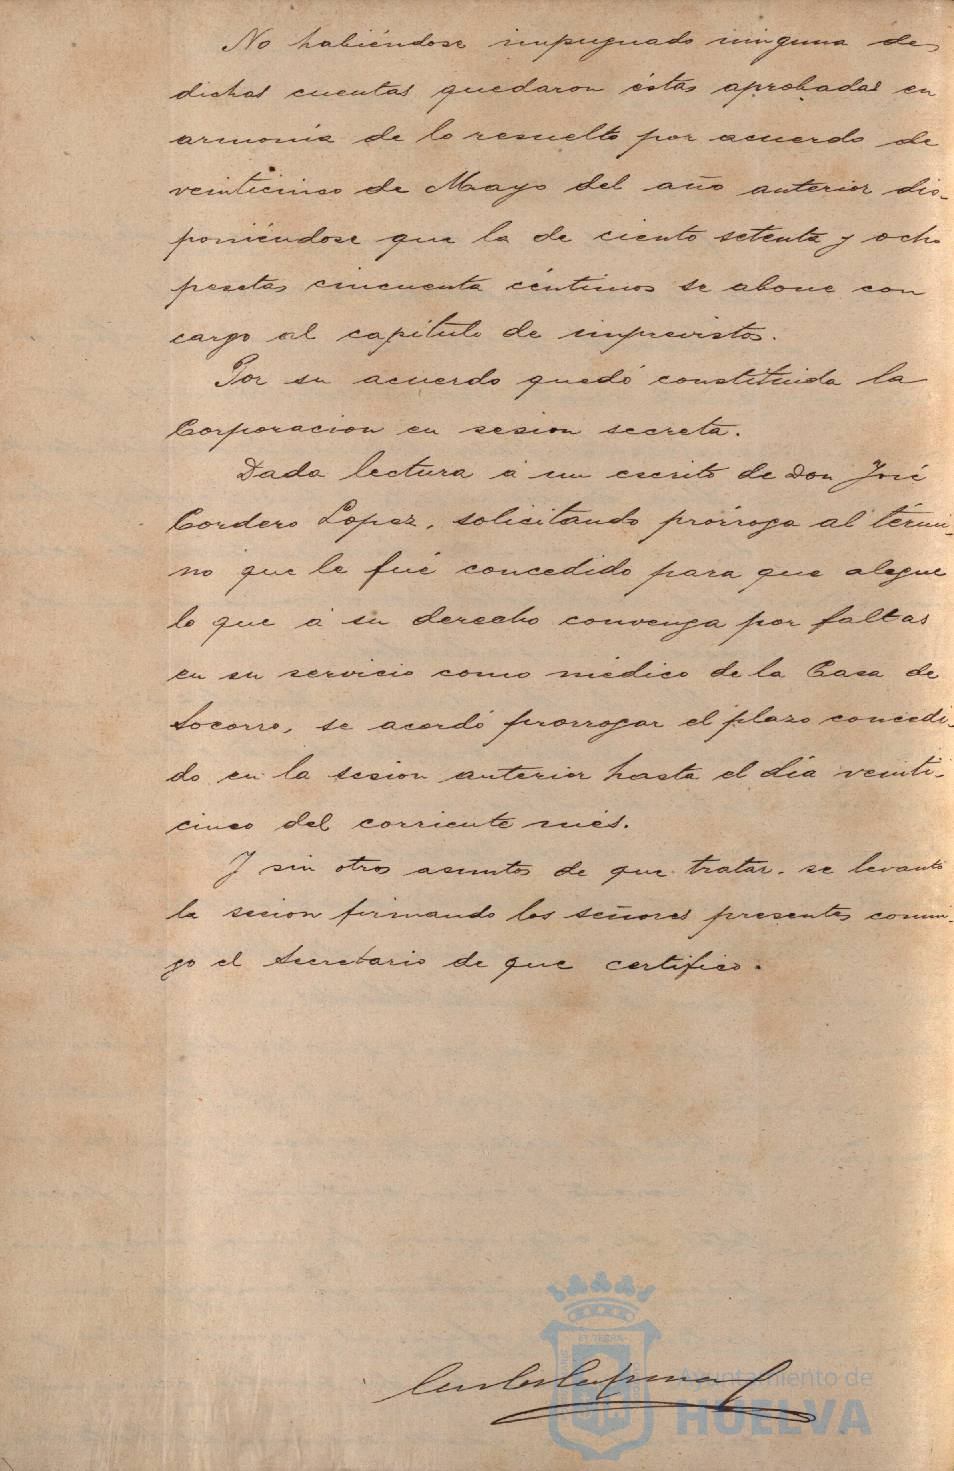 No habiéndose impugnado ninguna de
dichas cuentas quedaron éstas aprobadas en
armonía de lo resuelto por acuerdo de
veinticinco de Mayo del año anterior dis-
poniéndose que la de ciento setenta y ocho
pesetas cincuenta céntimos se abone con
cargo al capítulo de imprevistos.
Por su acuerdo quedó constituida la
Corporacion en sesion secreta.
Dada lectura á un escrito de Don José
Cordero Lopez, solicitando prórroga al térmi-
no que le fué concedido para que alegue
lo que á su derecho convenga por faltas
en su servicio como médico de la Casa de
Socorro, se acordó prorrogar el plazo concedi-
do en la sesion anterior hasta el día veinti-
cinco del corriente més.
Y sin otros asuntos de que tratar. se levantó
la sesion firmando los señores presentes conmi-
go el Secretario de que certifico.
Ayuntamiento de
HUELVA